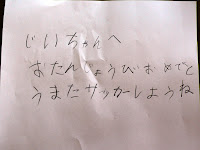 じいちゃんへ
おたんじょうびおめでと
うまたサッカーしようね